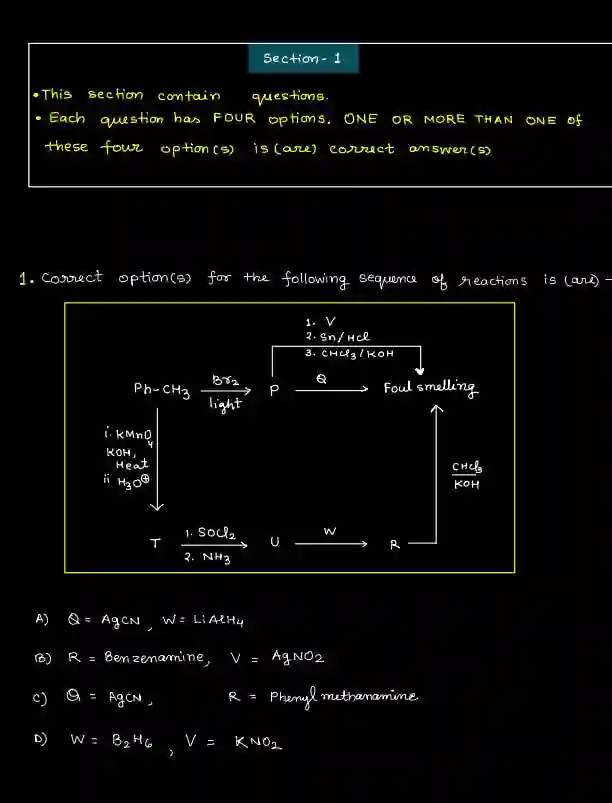 Section - 1
• This section contain questions.
• Each question has FOUR options. ONE OR MORE THAN ONE of
these four option(s) is (are) correct answer(s)
1. Correct option(s) for the following sequence of reactions is (are) -
1. V
2. Sn/HCl
3. CHCl3/KOH
Ph-CH3 Br2 light P Q Foul smelling
i. KMnO4
KOH,
Heat
ii H3O⊕
CHCl3
KOH
T 1. SOCl2 2. NH3 U W R
A) Q = AgCN, W = LiAlH4
B) R = Benzenamine, V = AgNO2
C) Q = AgCN, R = Phenylmethanamine
D) W = B2H6, V = KNO2